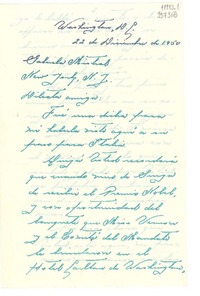 Washington, D.C.
22 de Diciembre de 1950
Gabriela Mistral
New York, N. Y.
Distinta amiga:
Fué una dicha para
mi haberla visto aquí a su
paso para Italia.
Quizá Usted recordará
que cuando vino de Suecia
de recibir el Premio Nobel,
y con oportunidad del
banquete que Miss Vernon
y el Comité del Mandato
le brindaron en el
Hotel Statler de Washington,